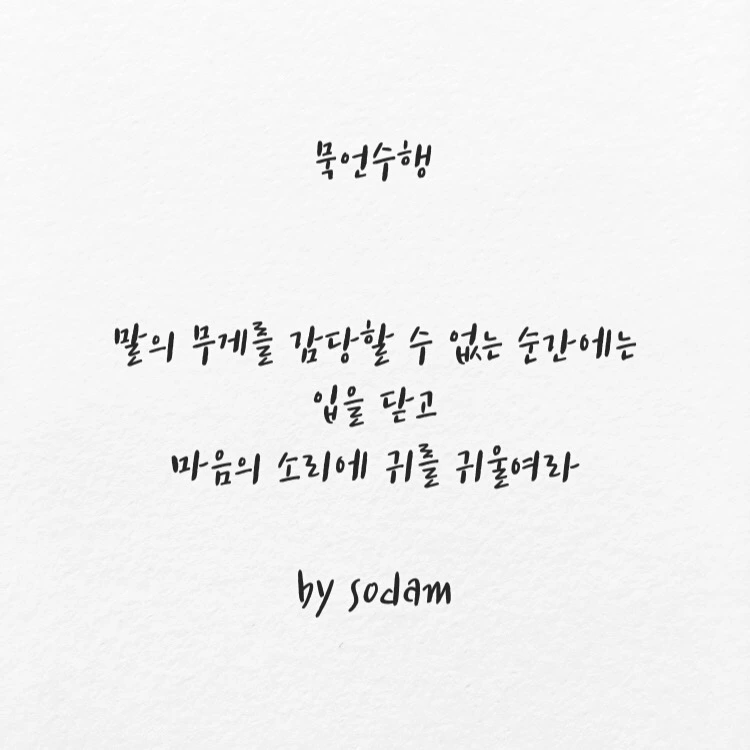 묵언수행
말의 무게를 감당할 수 없는 순간에는
입을 닫고
마음의 소리에 귀를 귀울여라
by sodam